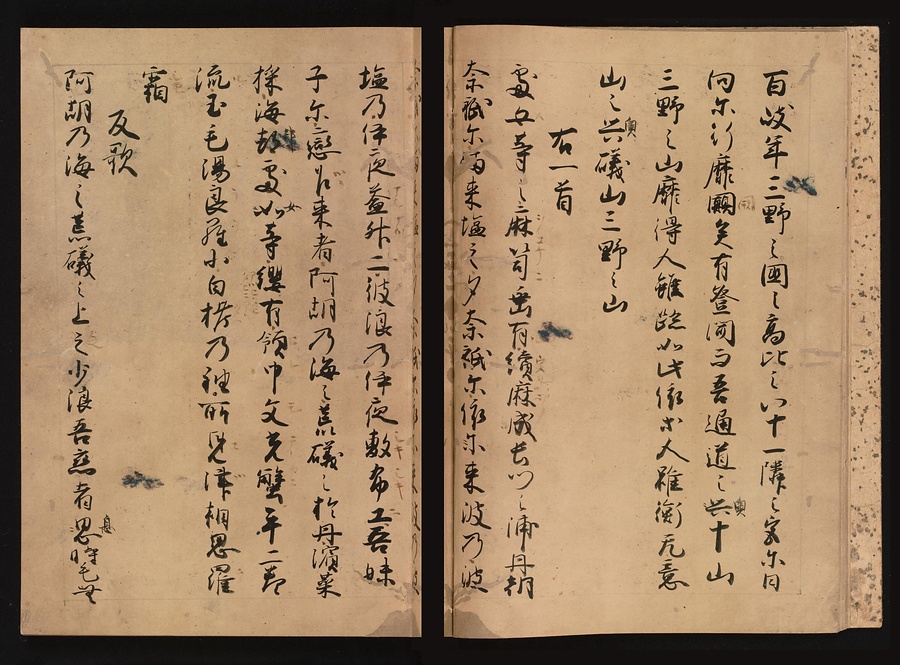 百岐年三野之國之高北之八十一隣之家尓日
向尓行靡闕矣有登聞而吾通道之共十山
奥
三野之山靡得人雖跡如此依等人雖衝无意
山之共礒山三野之山
奥
右一首
處女等之麻笥垂有續麻成長門之浦丹朝
奈祇尓満来塩之夕奈祇尓依尓来波乃波
塩乃伊夜益舛二彼浪乃伊夜敷布二吾妹
子尓戀乍来者阿胡乃海之荒礒之於丹濱菜
採海部處如等纓有領巾文光蟹手二巻
女
流玉毛湯良羅尓白栲乃袖所見津相思羅
霜
反歌
阿胡乃海之荒礒之上之少浪吾戀者思時毛無
息